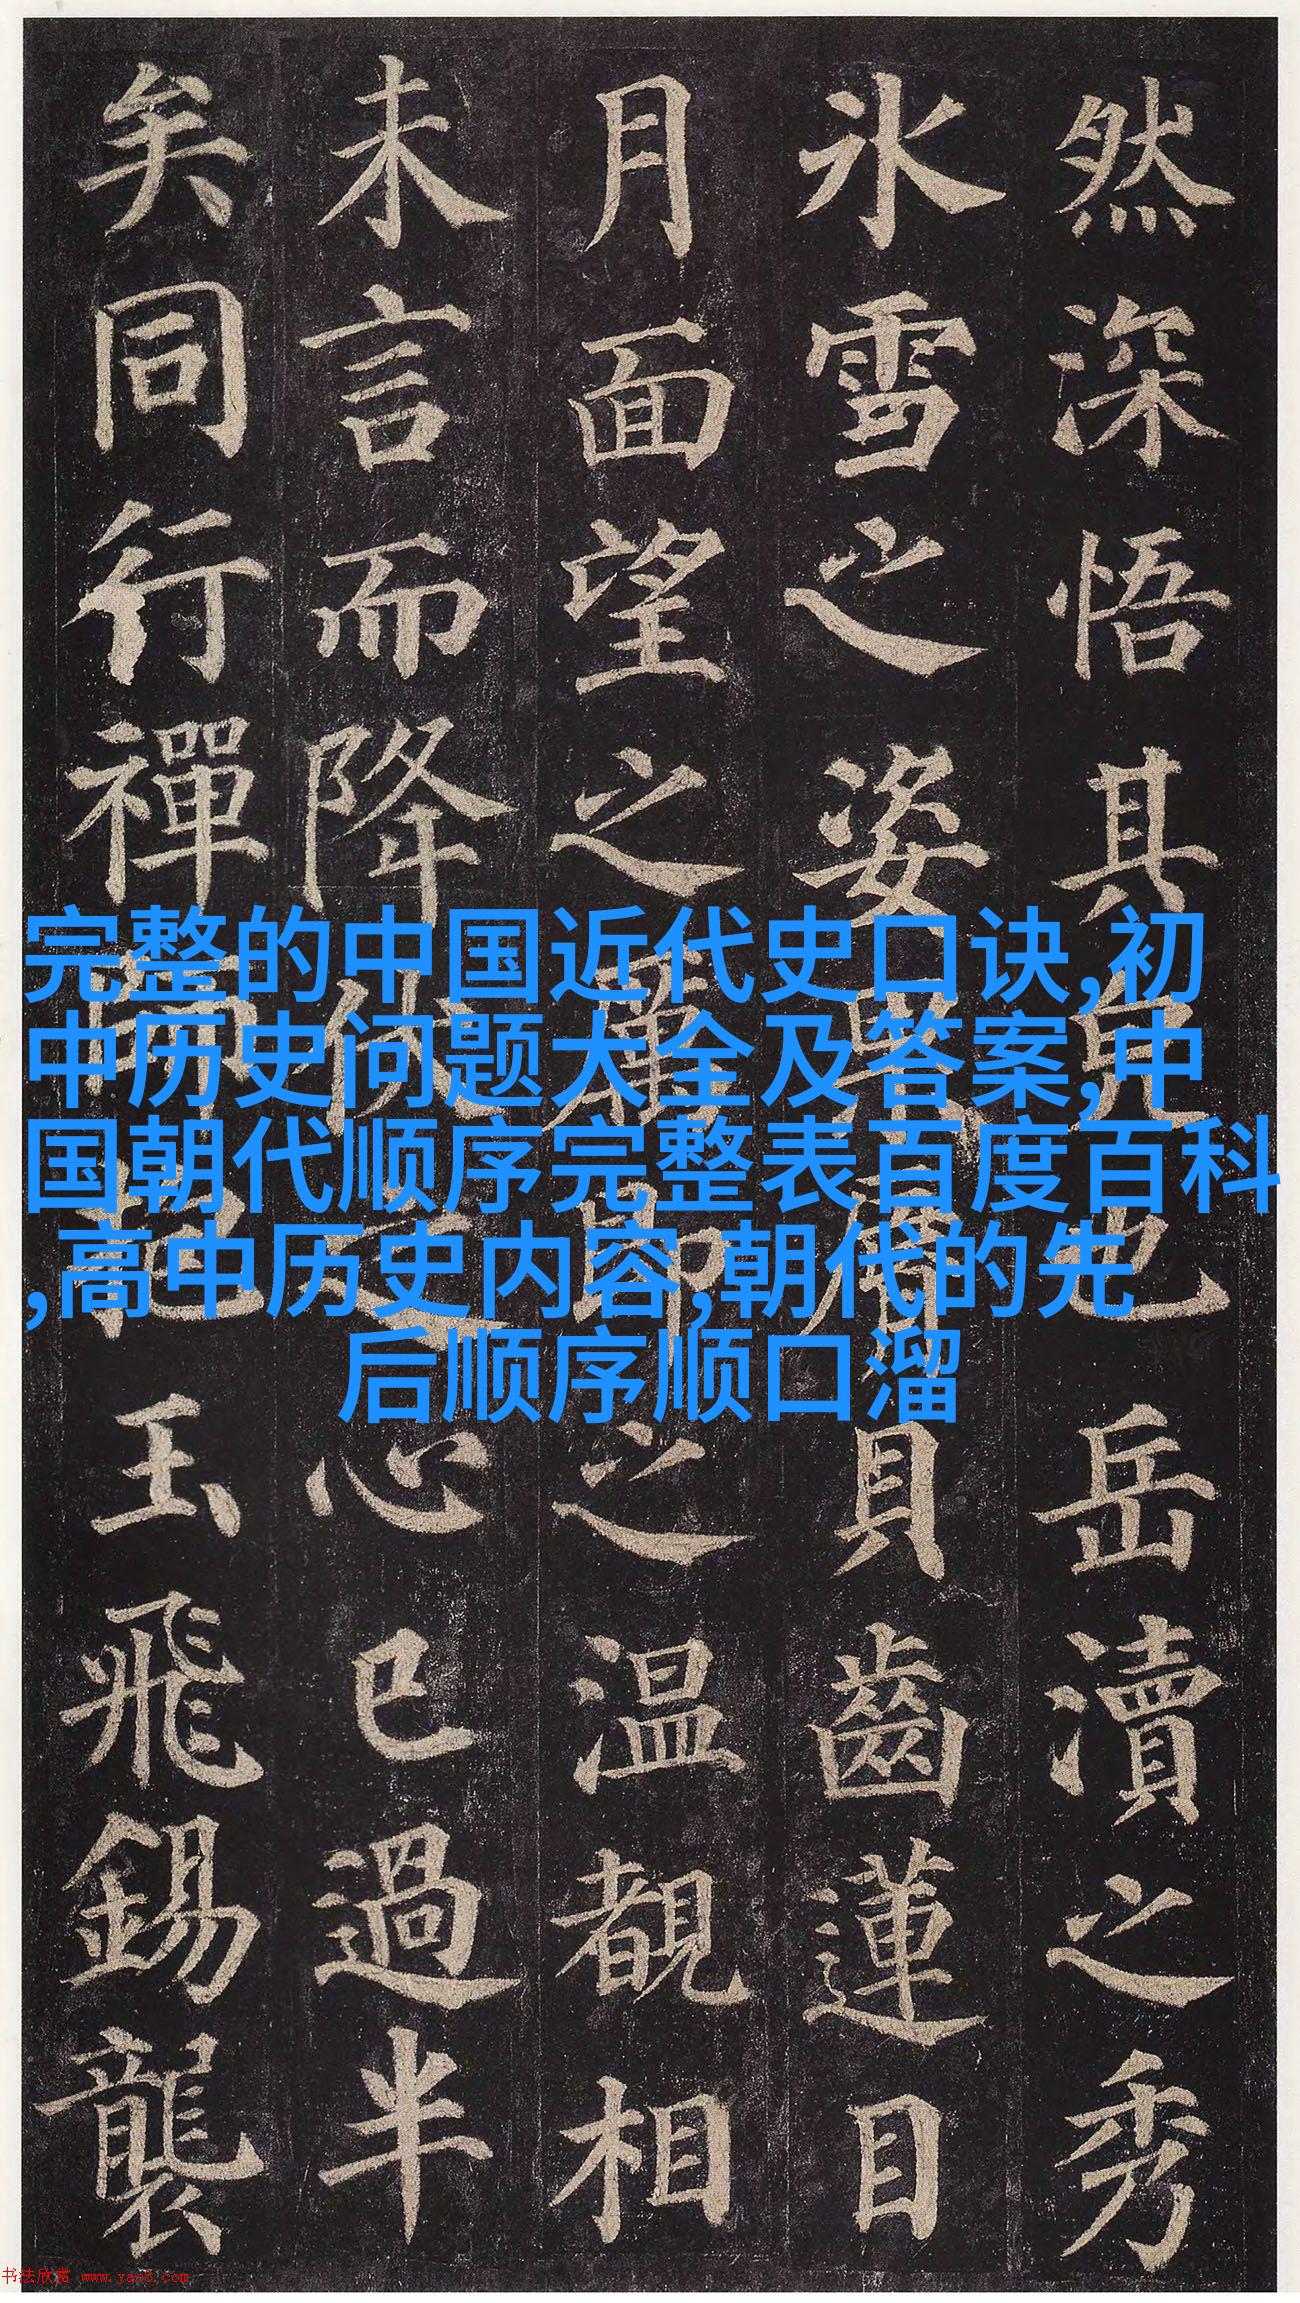 然深悟其皃也岳瀆之秀
氷雪之姿果脣貝齒蓮目
月面望之厲即之温覩相
未言而降伏之心已過半
矣同行禪師抱玉飛錫襲
完整的中国近代史口诀,初
中历史问题大全及答案,中
国朝代顺序完整表百度百科
,高中历史内容,朝代的先
后顺序顺口溜
书法欣赏 www.yac8.com